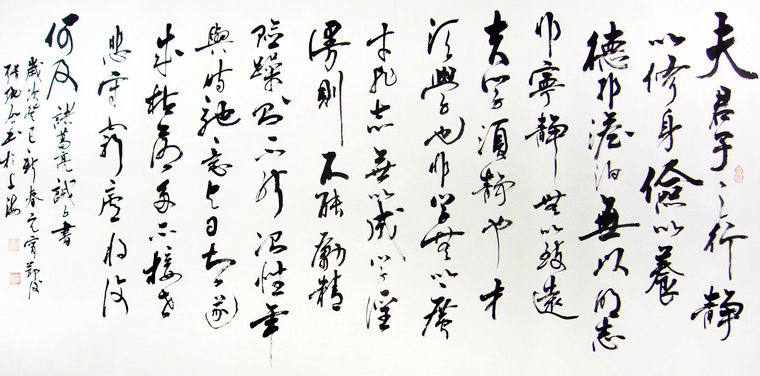 夫君子之行静
以修身儉以養
德非澹泊無以明志
非寧静無以致遠
夫学須静也才
須學也非学無以廣
才非志無以成学淫
漫則不能勵精
险躁则不能冶性年
與时驰意与日去遂
成枯落多不接世
悲守窮廬将復
何及 諸葛亮誡子書
歲次癸巳新春元宵
书於上海